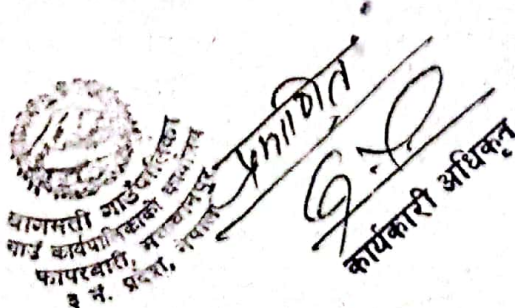 बागमती गाउँपालिका
गाउँ कार्यपालिकाको कार्यालय
फापरबारी, मकवानपुर
३ नं. प्रदेश, नेपाल
प्रमाणित
कार्यकारी अधिकृत